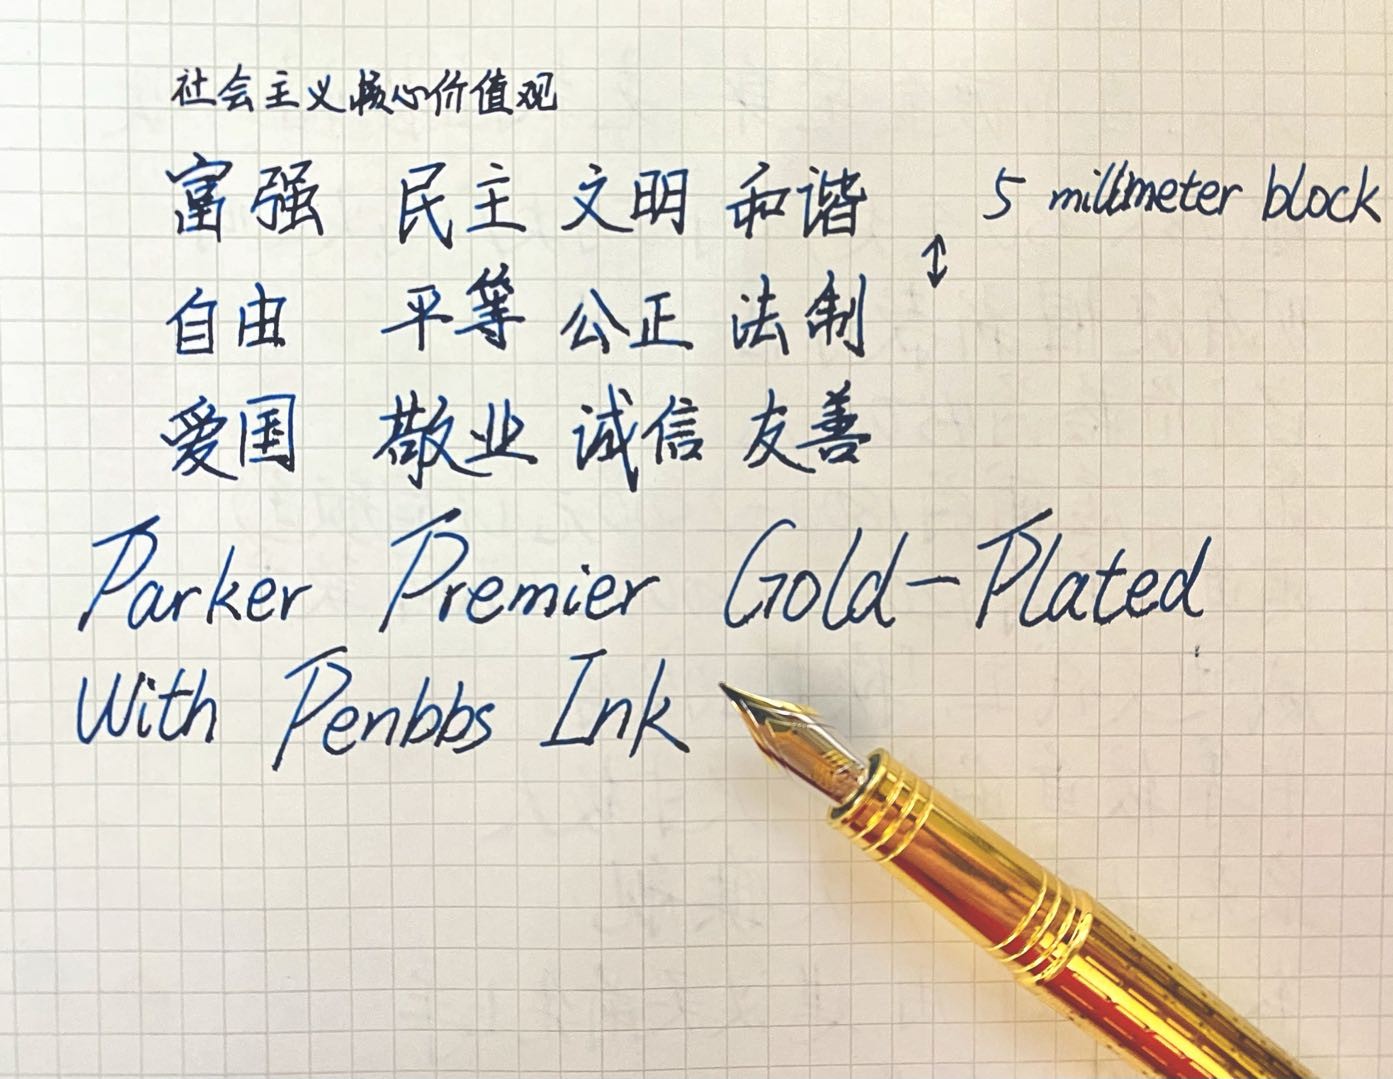 社会主义核心价值观
富强 民主 文明 和谐 5 millimeter block
自由 平等 公正 法制
爱国 敬业 诚信 友善
Parker Premier Gold-Plated
With Penbbs Ink